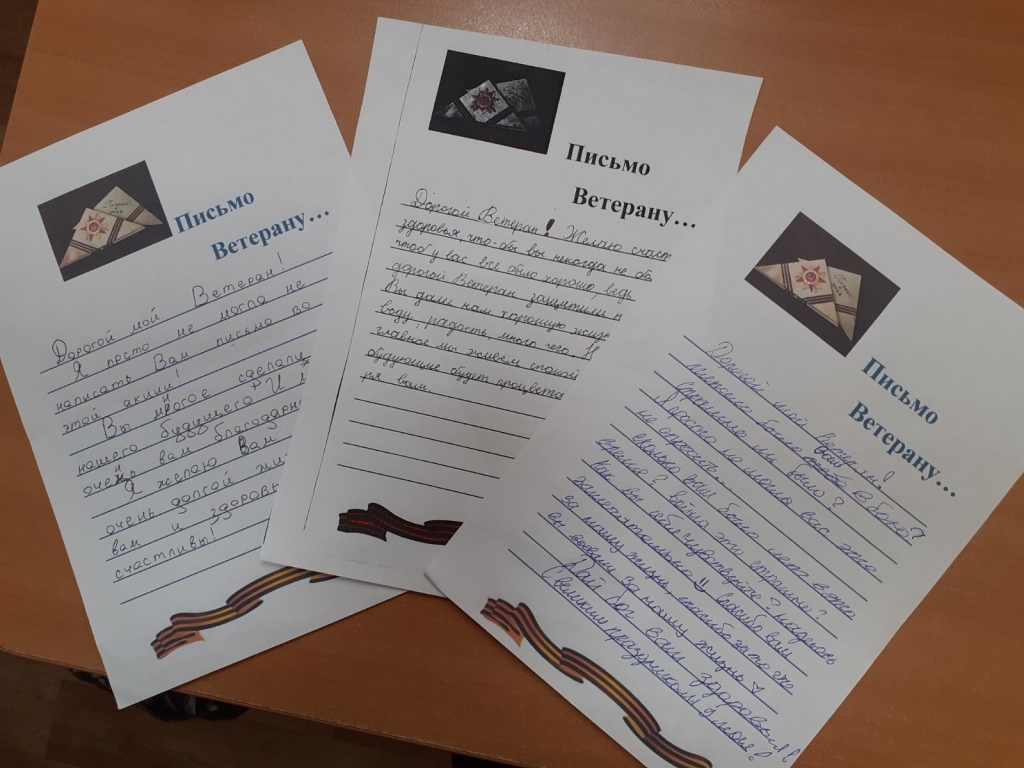 Письмо
Ветерану...
Дорогой мой Ветеран!
Я просто не могла не
написать Вам письмо по
этой акции!
Вы многое сделали
нашего будущего! И я
очень вам благодарн
Я желаю Вам
очень долгой жи
вам и здоровь
счастливы!
Письмо
Ветерану...
Дорогой Ветеран! Желаю счаст
здоровья, что-бы вы некогда не об
чтоб у вас всё было хорошо, ведь
дорогой Ветеран защитили н
Вы дали нам хорошую жизн
воду, радость, много чего. И
главное мы живём спокой
будующие будет процвета
ря вам.
Письмо
Ветерану...
Дорогой мой Ветеран!
было?
страшно или было?
Просто не могла вас это
не спросить...
Сколько вам было лет в это
время? война это страшно?
Как вы себя чувствуете? надеюсь
замечательно!! Спасибо вам
за нашу жизнь, спасибо за то что
вы за нашу жизнь ♡
Дай Бог Вам здоровья!!
С Великим праздником